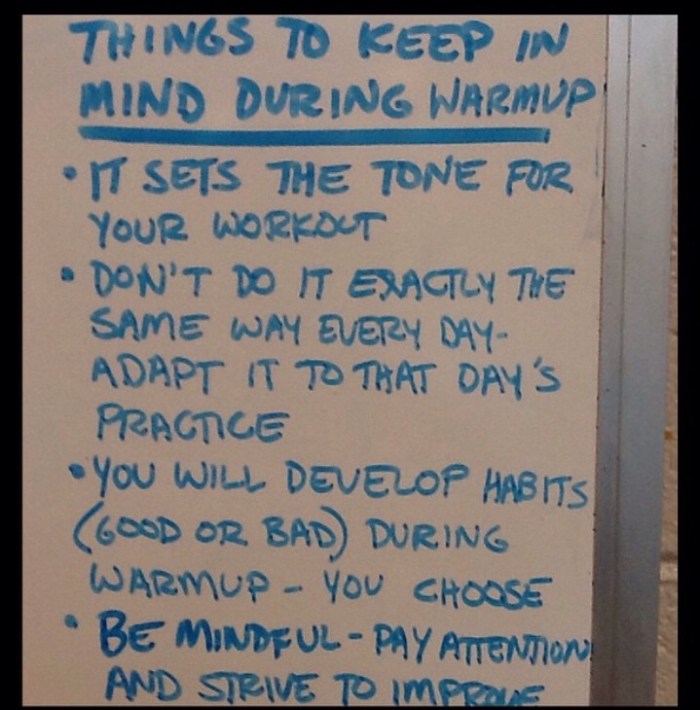 THINGS TO KEEP IN
MIND DURING WARMUP
• IT SETS THE TONE FOR
YOUR WORKOUT
• DON'T DO IT EXACTLY THE
SAME WAY EVERY DAY-
ADAPT IT TO THAT DAY'S
PRACTICE
• YOU WILL DEVELOP HABITS
(GOOD OR BAD) DURING
WARMUP - YOU CHOOSE
• BE MINDFUL - PAY ATTENTION
AND STRIVE TO IMPROVE